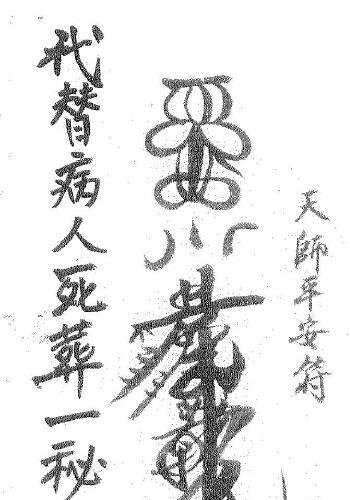 天師平安符
代替病人死葬一秘